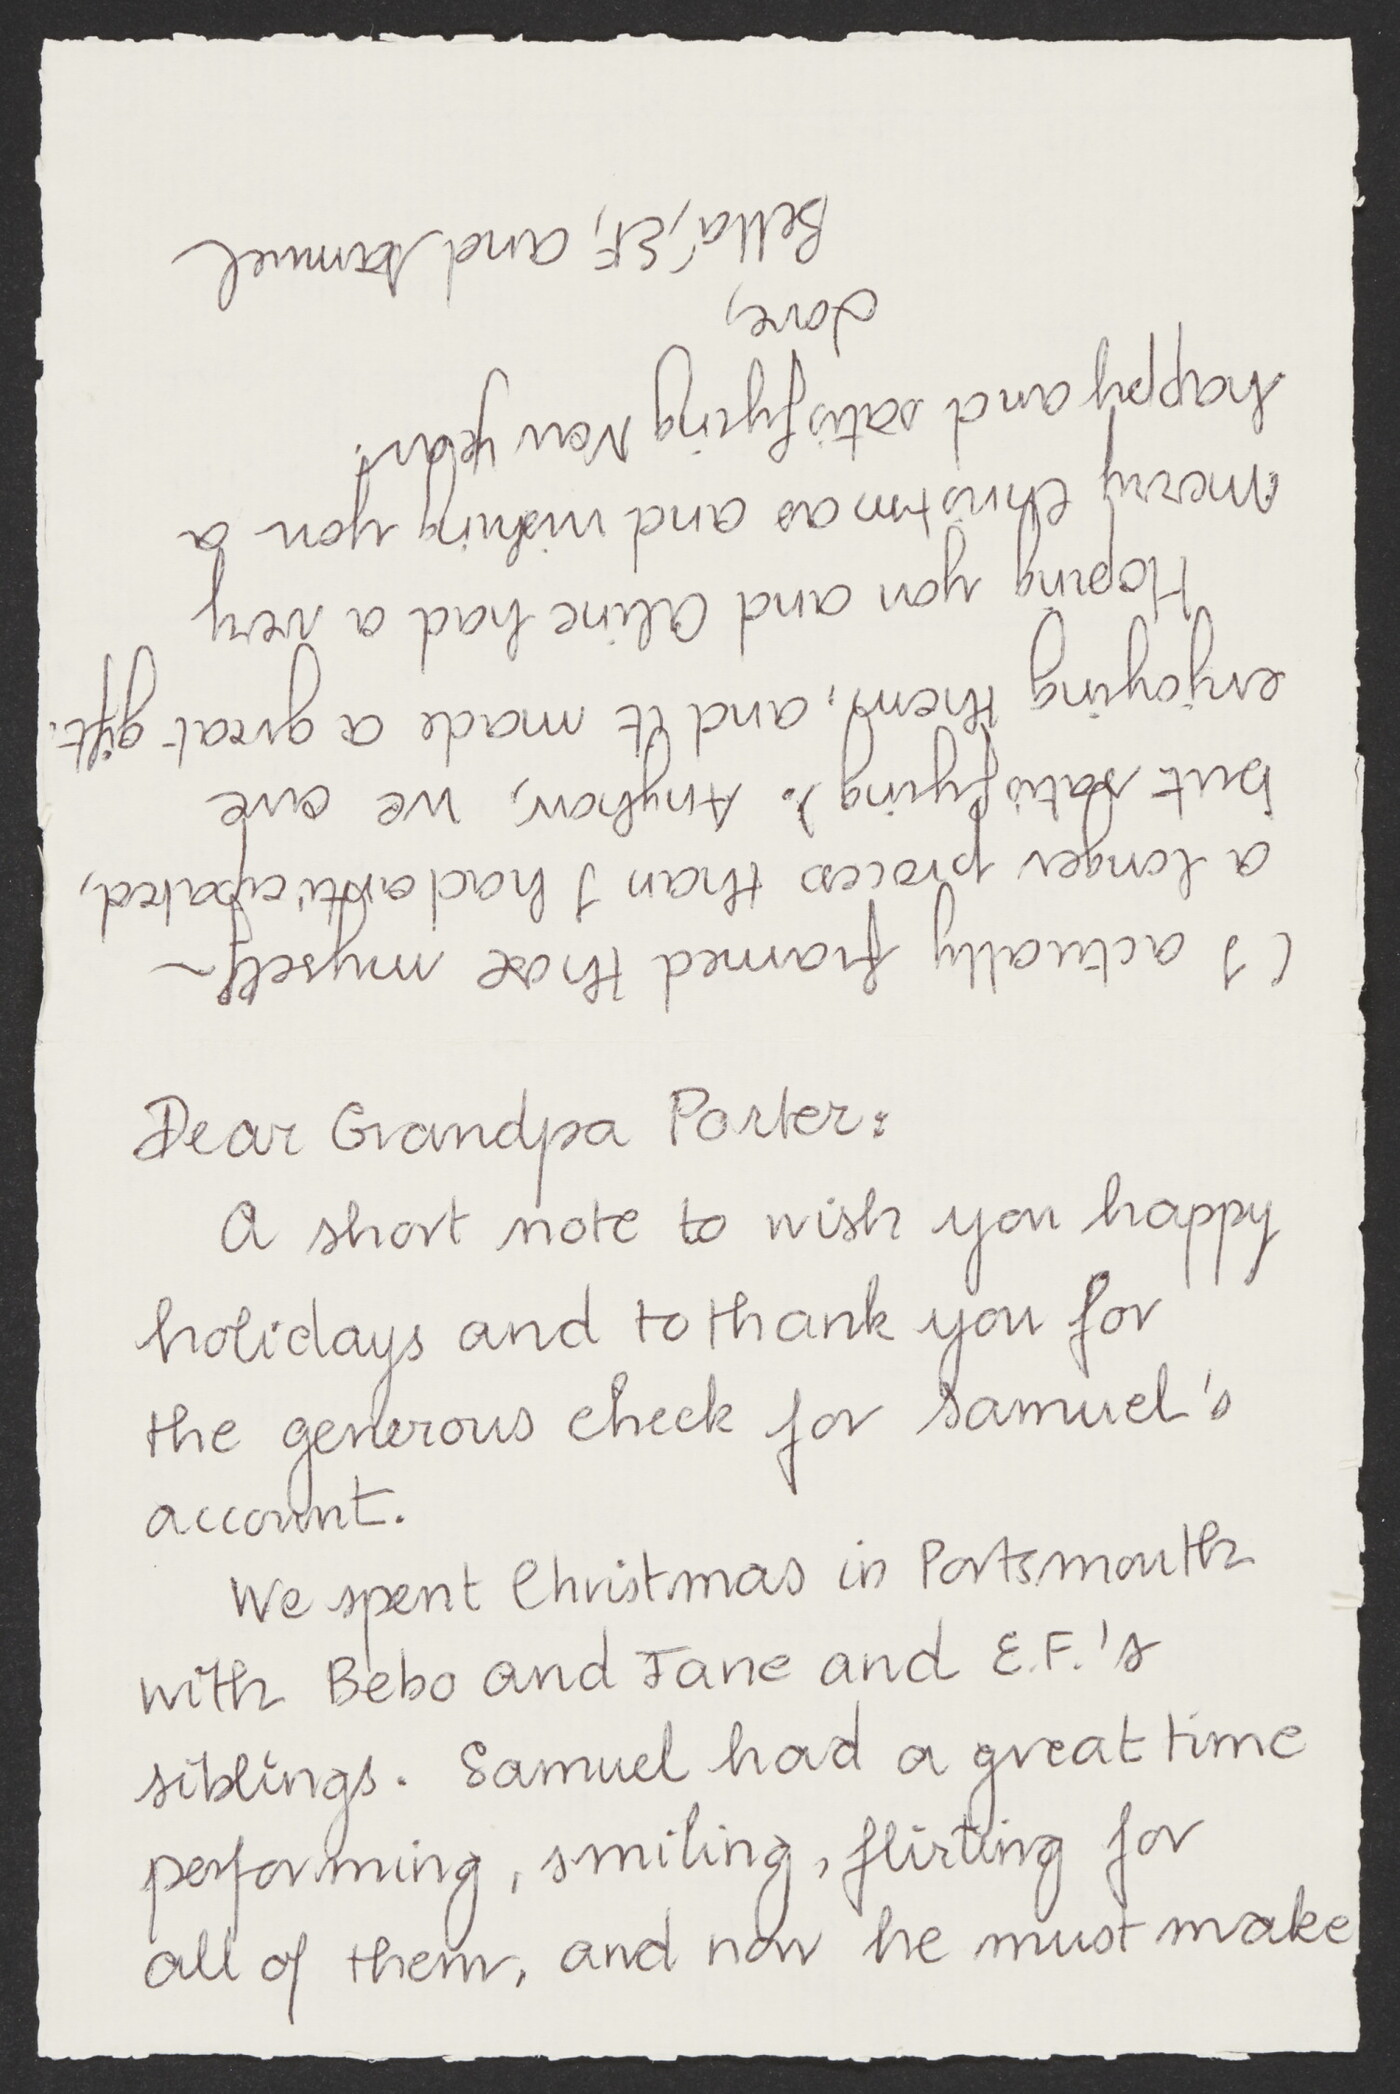 Dear Grandpa Porter:
A short note to wish you happy
holidays and to thank you for
the generous check for Samuel's
account.
We spent Christmas in Portsmouth
with Bebo and Jane and E.F.'s
siblings. Samuel had a great time
performing, smiling, flirting for
all of them, and now he must make
(I actually framed those myself ~
a longer process than I had anticipated,
but satisfying). Anyhow, we are
enjoying them, and it made a great gift.
Hoping you and Aline had a very
merry Christmas and wishing you a
happy and satisfying New year!
Love,
Bella, EF, and Samuel